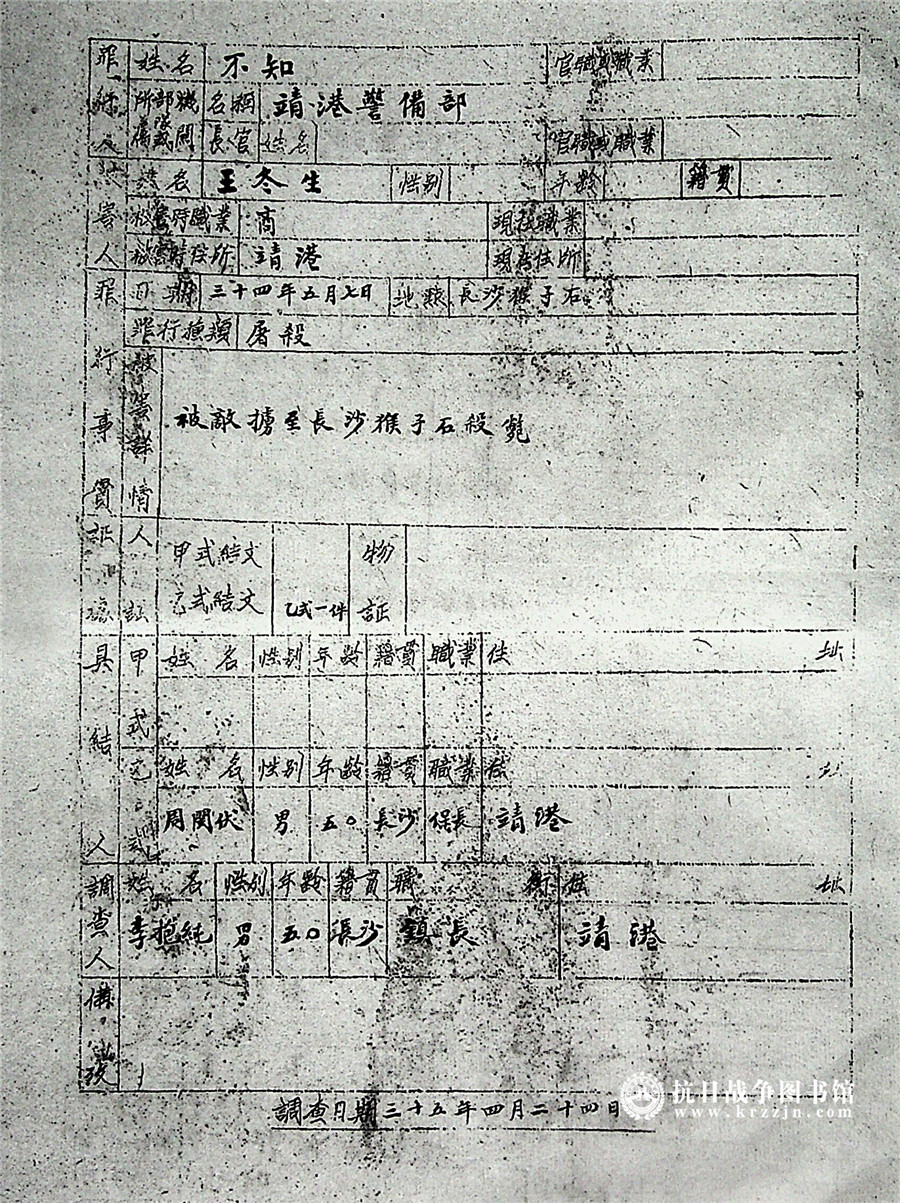 罪行人 姓名 不知 官職或職業
所屬部隊或機關 名稱 靖港警備部
長官 姓名 官職或職業
被害人 姓名 王冬生 性别 年齡 籍貫
被害時職業 商 現在職業
被害時住所 靖港 現在住所
罪行事實 日期 三十四年五月七日 地點 長沙猴子石
罪行種類 屠殺
被害詳情 被敵擄至長沙猴子石殺斃
証據 人証 甲式結文 物証
乙式結文 乙式一件
具結人 甲式 姓名 性别 年齡 籍貫 職業 住址
乙式 姓名 性别 年齡 籍貫 職業 住址
周 伏 男 五〇 長沙 保長 靖港
調查人 姓名 性别 年齡 籍貫 職銜 住址
李 純 男 五〇 張沙 鎮長 靖港
備攷
調查日期三十五年四月二十四日
抗日战争图书馆
www.krzzjn.com